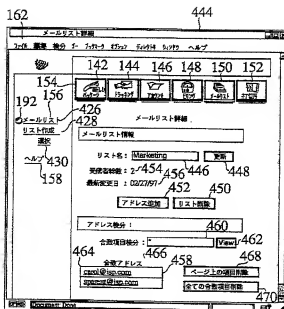 162
444
メールリスト詳細
ファイル 編集 検分 ゴー ブックマーク オプション ディレクトリ ウィンドウ ヘルプ
154 142 144 146 148 150 152
192 156
メールリスト 426
リスト作成 428
選択
ヘルプ 430
158
メールリスト詳細
メールリスト情報
リスト名: Marketing 更新
446 448
受信者総数: 2 454
456
最新変更日: 02/27/97
452 450
アドレス追加 リスト削除
アドレス検分: 460
合致項目検分: * View 462
466
464 合致アドレス 458 468
carol@isp.com ページ上の項目削除
spencer@isp.com 全ての合致項目削除
470
Document: Done